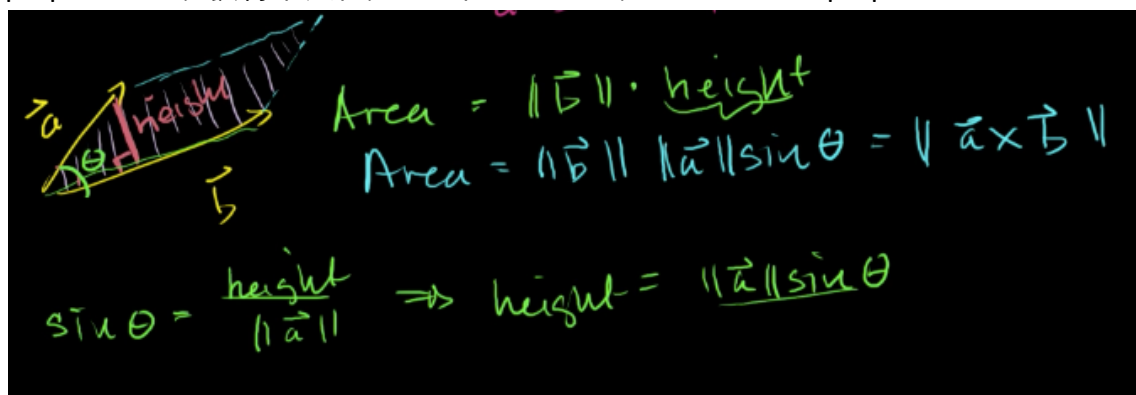 a⃗ height θ b⃗
Area = ‖b⃗‖ · height
Area = ‖b⃗‖ ‖a⃗‖ sin θ = ‖a⃗ × b⃗‖
sin θ = height / ‖a⃗‖ ⇒ height = ‖a⃗‖ sin θ